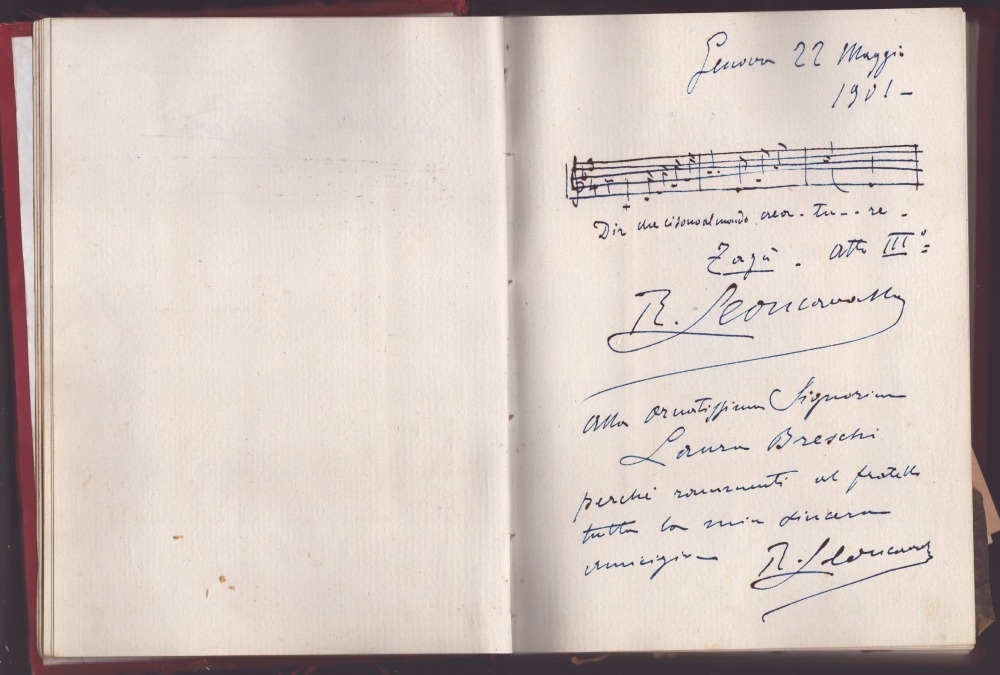 Genova 22 Maggio
1901 –
Dir che ci sono al mondo crea - tu - - re -
Zazà - Atto IIIº =
R. Leoncavallo
Alla ornatissima Signorina
Laura Breschi
perché rammenti al fratello
tutta la mia sincera
amicizia
R. Leoncavallo